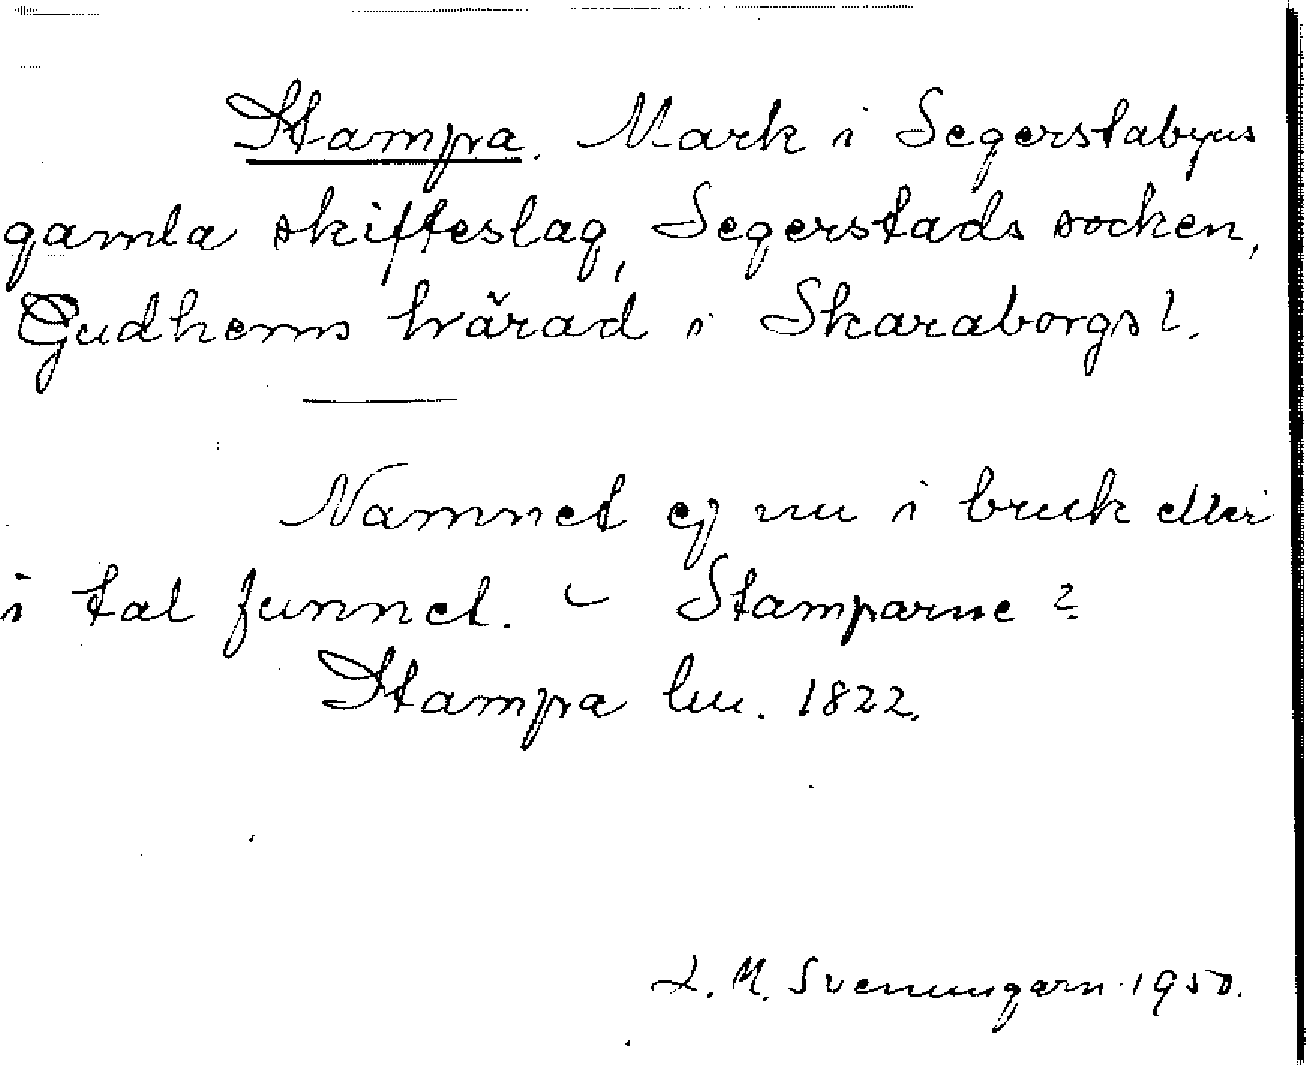 Stampa. Mark i Segerstabyns
gamla skifteslag, Segerstads socken,
Gudhems härad i Skaraborgs l.
Namnet ej nu i bruk eller
i tal funnet. - Stamparne?
Stampa lm. 1822.
L. M. Svenungsson 1950.